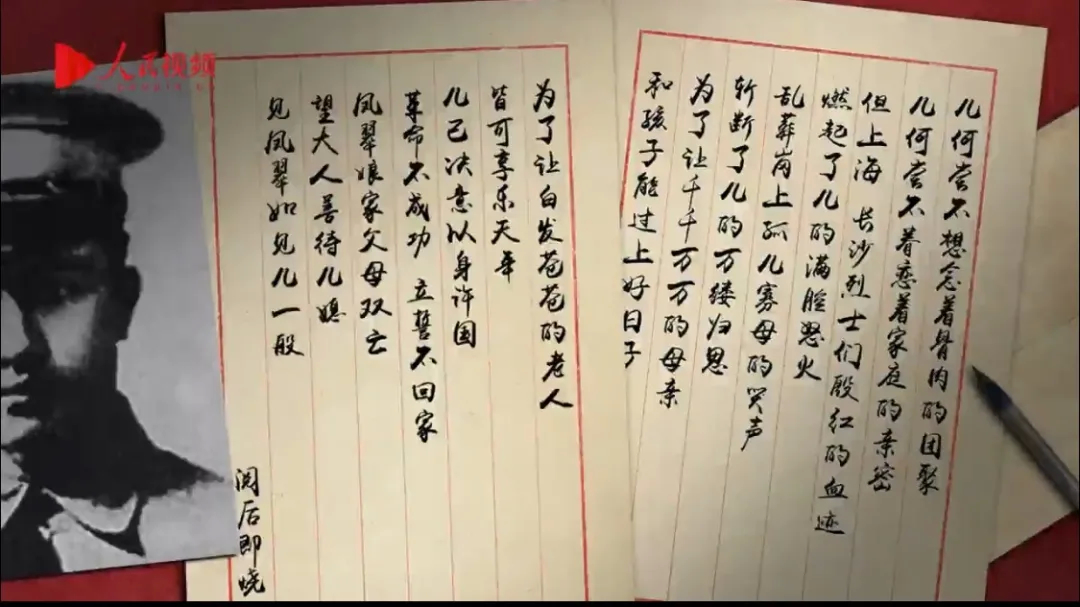 人民视频
儿何尝不想念着骨肉的团聚
儿何尝不眷恋着家庭的亲密
但上海 长沙烈士们殷红的血迹
燃起了儿的满腔怒火
乱葬岗上孤儿寡母的哭声
斩断了儿的万缕归思
为了让千千万万的母亲
和孩子能过上好日子
为了让白发苍苍的老人
皆可享乐天年
儿已决意以身许国
革命不成功 立誓不回家
凤翠娘家父母双亡
望大人善待儿媳
见凤翠如见儿一般
阅后即烧